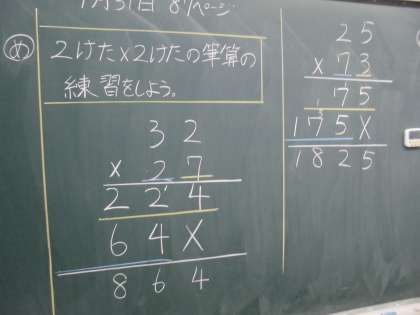 1月31日 87ページ
め
2けた×2けたの筆算の
練習をしよう。
32
×27
224
64X
864
25
×73
75
175X
1825